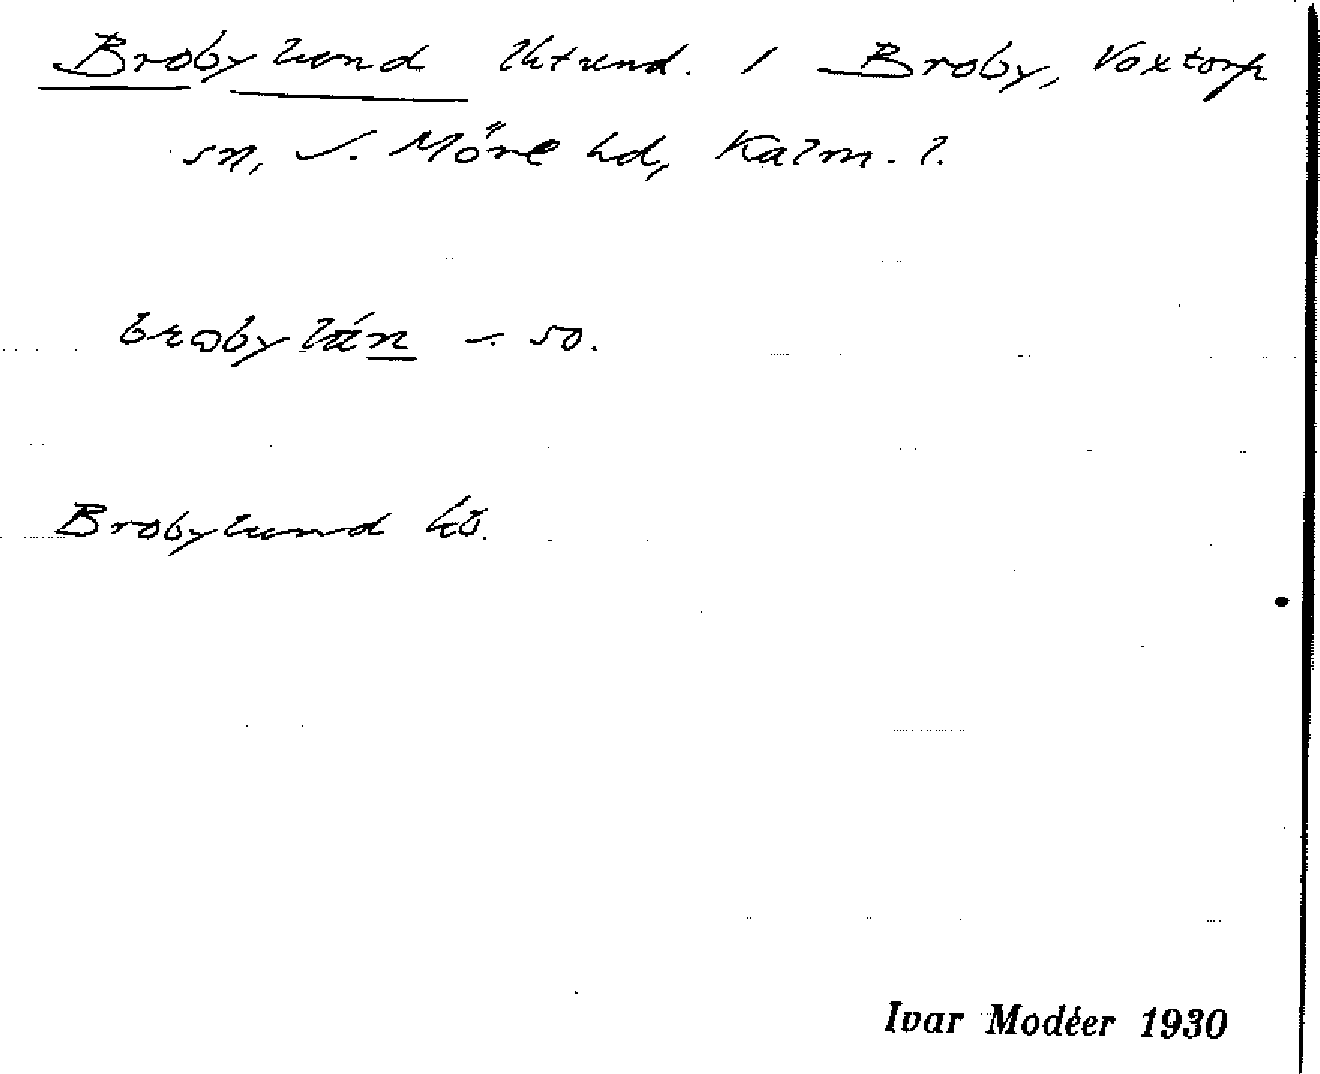 Brobylund lht und. 1 Broby, Voxtorp
sn, S. Möre hd, Kalm. l.
brobylán – so.
Brobylund kö.
Ivar Modéer 1930